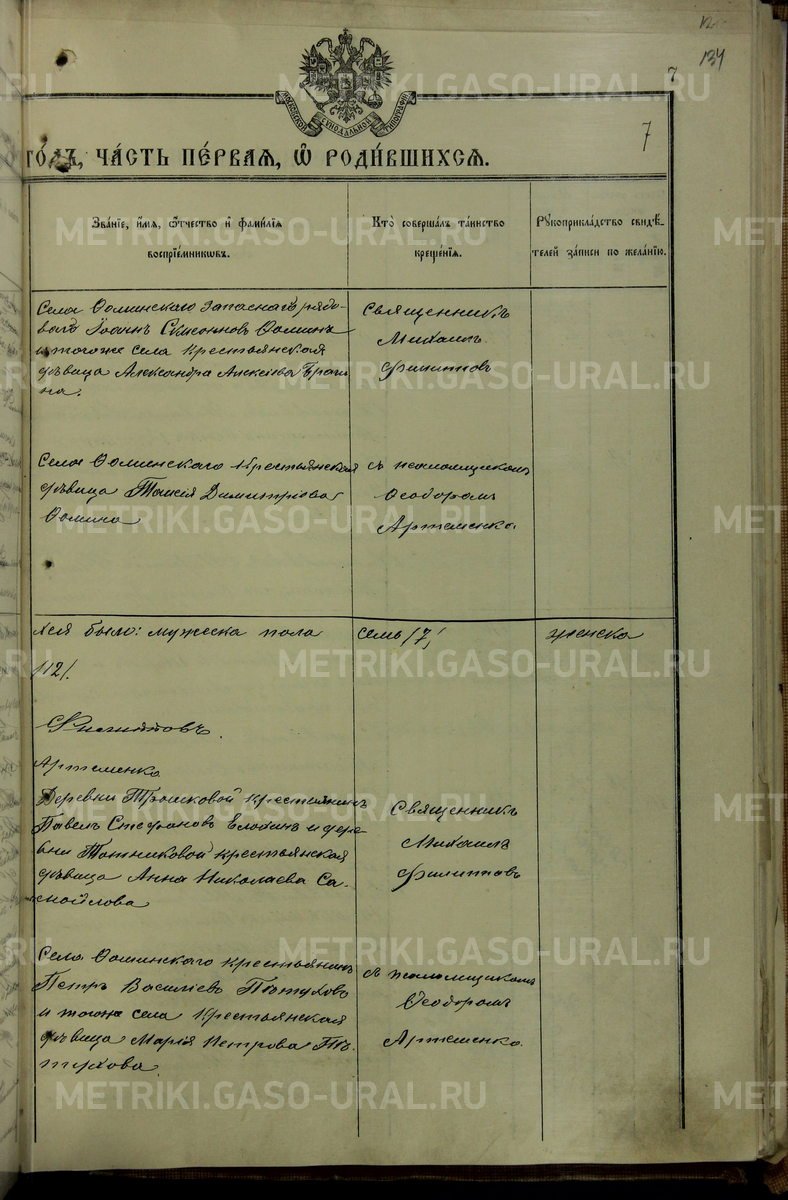 134
7
7
МОСКОВСКОЙ СѴНОДАЛЬНОЙ ТИПОГРАФІИ
го́дъ, ча́сть пе́рваѧ, ѡ҆ роди́вшихсѧ.
Зва́нїе, и҆́мѧ, ѻ҆́тчество и҆ фами́лїѧ
воспрїе́мникѡвъ.
Кто̀ соверша́лъ та́инство
креще́нїѧ.
Рꙋкоприкла́дство свидѣ́-
телей за́писи по жела́нїю.
Села Ѳоминскаго запаснаго рядо-
ваго Іоаннъ Симеоновъ Ѳоминъ
и тогоже села крестьянская
дѣвица Александра Алексіева Браги
на.
Священникъ
Михаилъ
Филиповъ
Села Ѳоминскаго крестьянская
дѣвица Таисія Димитріова
Ѳомина
съ псаломщикомъ
Ѳеодоромъ
Артеменко.
хся было: мужеска пола
семь /7/
женска
/12/.
Филиповъ.
Артеменко
Деревни Трошковой крестьянинъ
Павелъ Стефановъ Елохинъ и дере-
вни крестьянская
дѣвица Анна Николаева Са-
мойлова
Священникъ
Михаилъ
Филиповъ
Села Ѳоминскаго крестьянинъ
Петръ Василіевъ Пѣтуховъ
и тогоже села крестьянская
дѣвица Марія Петрова Пѣ-
тухова.
съ псаломщикомъ
Ѳеодоромъ
Артеменко.
METRIKI.GASO-URAL.RU